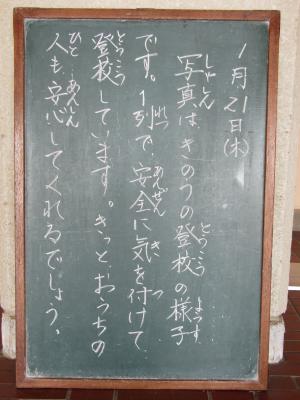 1月21日(木)
写真は、きのうの登校の様子
です。1列で、安全に気を付けて
登校しています。きっと、おうちの
人も、安心してくれるでしょう。
しゃしん
とうこう
ようす
れつ
あんぜん
き
つ
とうこう
ひと
あんしん